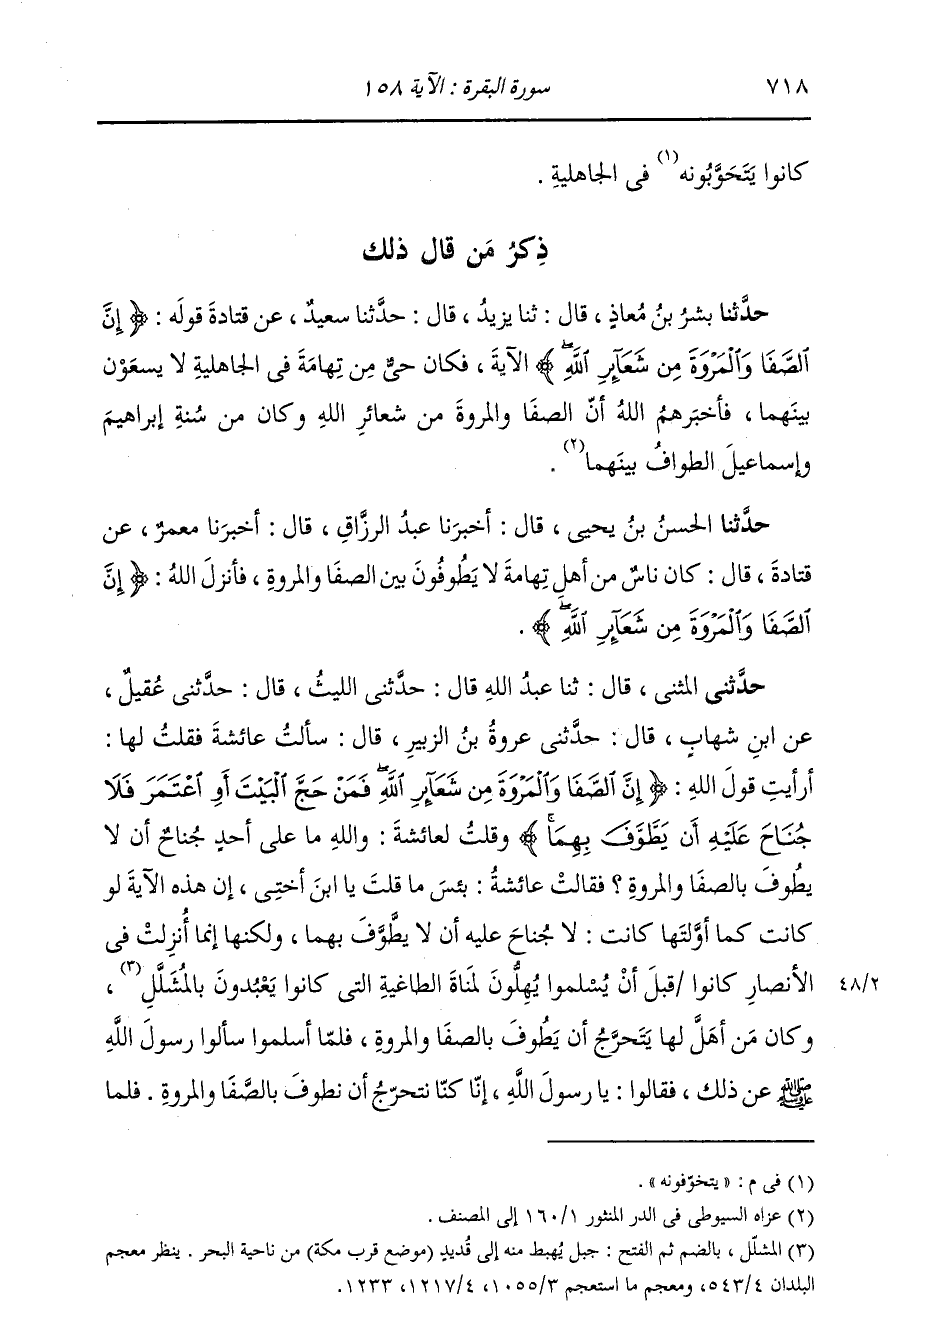 ٧١٨
سورة البقرة : الآية ١٥٨
كانوا يَتَحَوَّبُونه(١) فى الجاهليةِ .
ذِكرُ مَن قال ذلك
حدَّثنا بشرُ بنُ مُعاذٍ ، قال : ثنا يزيدُ ، قال : حدَّثنا سعيدٌ ، عن قتادةَ قولَه : ﴿ إِنَّ
ٱلصَّفَا وَٱلْمَرْوَةَ مِن شَعَآبِرِ ٱللَّهِۖ ﴾ الآيةَ ، فكان حىٌّ مِن تِهامَةَ فى الجاهليةِ لا يسعَوْن
بينَهما ، فأخبَرهمُ اللهُ أنّ الصفَا والمروةَ من شعائرِ اللهِ وكان من سُنةِ إبراهيمَ
وإسماعيلَ الطوافُ بينَهما(٢) .
حدَّثنا الحسنُ بنُ يحيى ، قال : أخبرَنا عبدُ الرزَّاقِ ، قال : أخبرَنا معمرٌ ، عن
قتادةَ ، قال : كان ناسٌ من أهلِ تِهامةَ لا يَطُوفُونَ بين الصفَا والمروةِ ، فأنزلَ اللهُ : ﴿ إِنَّ
ٱلصَّفَا وَٱلْمَرْوَةَ مِن شَعَآبِرِ ٱللَّهِۖ ﴾ .
حدَّثنى المثنى ، قال : ثنا عبدُ اللهِ قال : حدَّثنى الليثُ ، قال : حدَّثنى عُقيلٌ ،
عن ابنِ شهابٍ ، قال : حدَّثنى عروةُ بنُ الزبيرِ ، قال : سألتُ عائشةَ فقلتُ لها :
أرأيتِ قولَ اللهِ : ﴿ إِنَّ ٱلصَّفَا وَٱلْمَرْوَةَ مِن شَعَآبِرِ ٱللَّهِۖ فَمَنْ حَجَّ ٱلْبَيْتَ أَوِ ٱعْتَمَرَ فَلَا
جُنَاحَ عَلَيْهِ أَن يَطَّوَّفَ بِهِمَاۚ ﴾ وقلتُ لعائشةَ : واللهِ ما على أحدٍ جُناحٌ أن لا
يطُوفَ بالصفَا والمروةِ ؟ فقالتْ عائشةُ : بئسَ ما قلتَ يا ابنَ أختِى ، إن هذه الآيةَ لو
كانت كما أوَّلتَها كانت : لا جُناحَ عليه أن لا يطَّوَّفَ بهما ، ولكنها إنما أُنزِلتْ فى
الأنصارِ كانوا /قبلَ أنْ يُسْلموا يُهِلُّونَ لمَناةَ الطاغيةِ التى كانوا يَعْبُدونَ بالمُشَلَّلِ(٣) ،
٤٨/٢
وكان مَن أهَلَّ لها يَتَحرَّجُ أن يَطُوفَ بالصفَا والمروةِ ، فلمّا أسلموا سألوا رسولَ اللَّهِ
ﷺ عن ذلك ، فقالوا : يا رسولَ اللَّهِ ، إنّا كنّا نتحرّجُ أن نطوفَ بالصَّفَا والمروةِ . فلما
(١) فى م : « يتخوّفونه » .
(٢) عزاه السيوطى فى الدر المنثور ١٦٠/١ إلى المصنف .
(٣) المشلّل ، بالضم ثم الفتح : جبل يُهبط منه إلى قُديدٍ (موضع قرب مكة) من ناحية البحر . ينظر معجم
البلدان ٥٤٣/٤، ومعجم ما استعجم ١٠٥٥/٣، ١٢١٧/٤، ١٢٣٣.